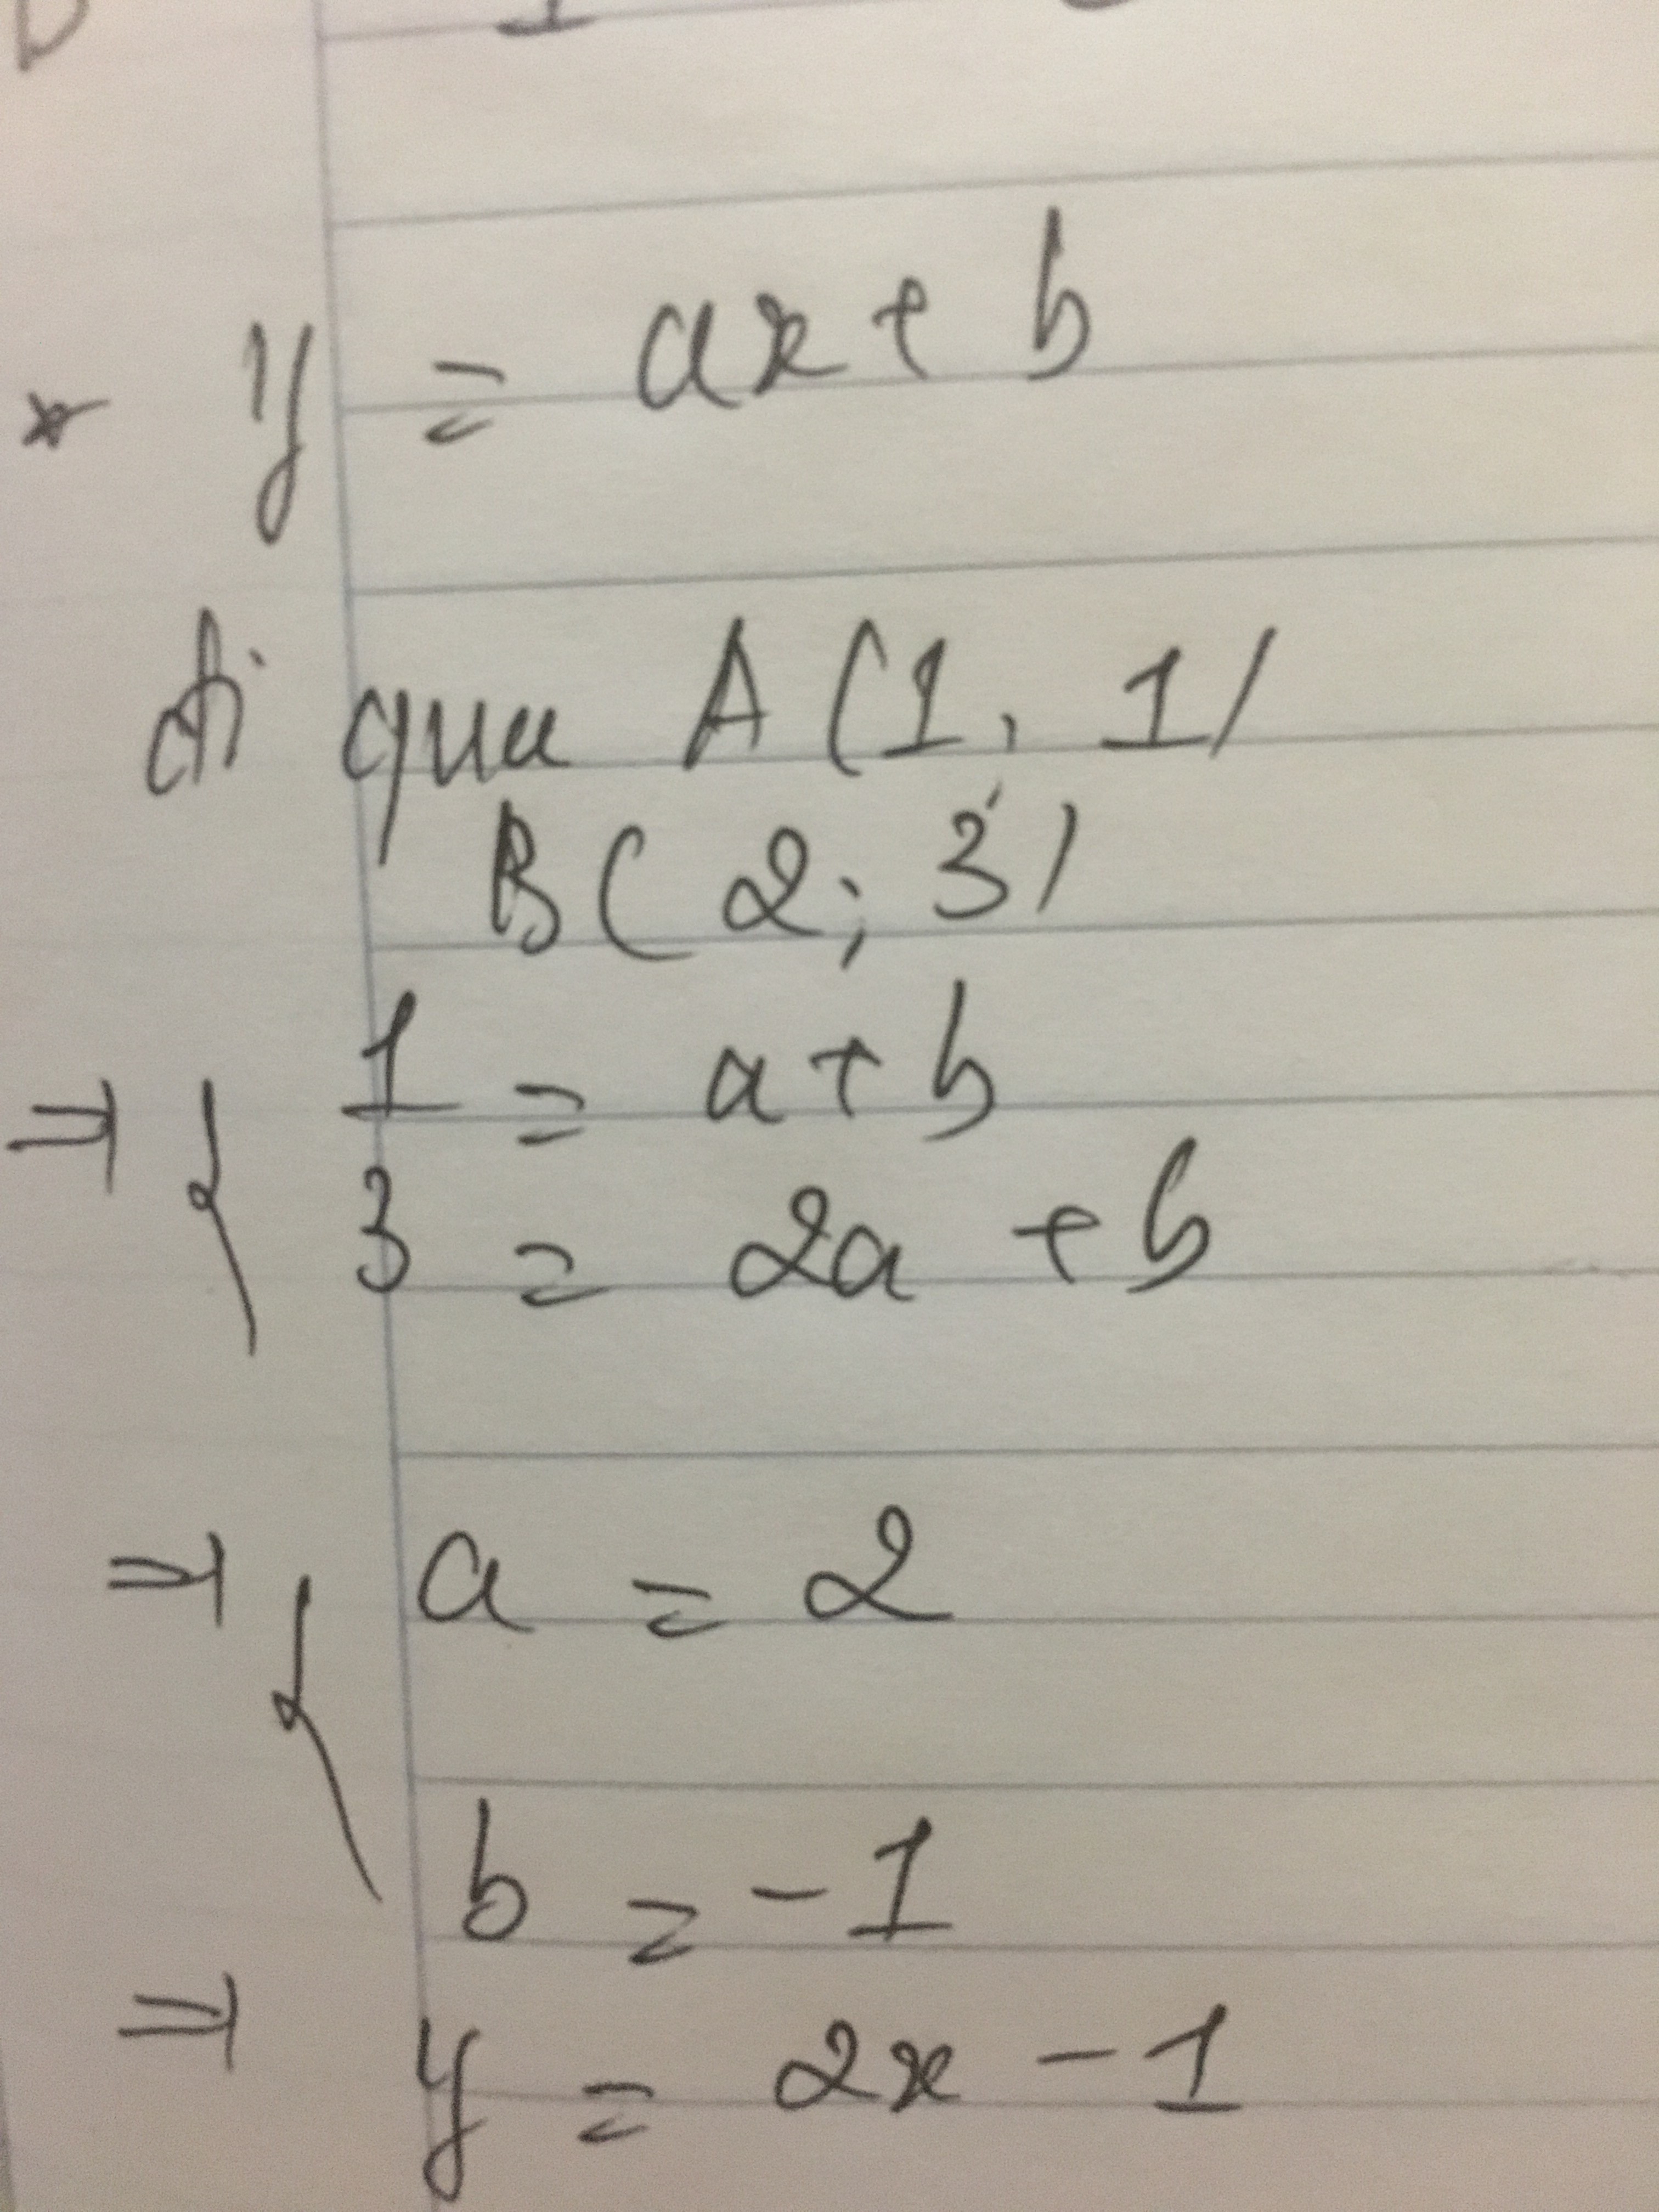 * y = ax + b
đi qua A(1, 1)
B(2; 3)
=> { 1 = a + b
3 = 2a + b
=> { a = 2
b = -1
=> y = 2x - 1